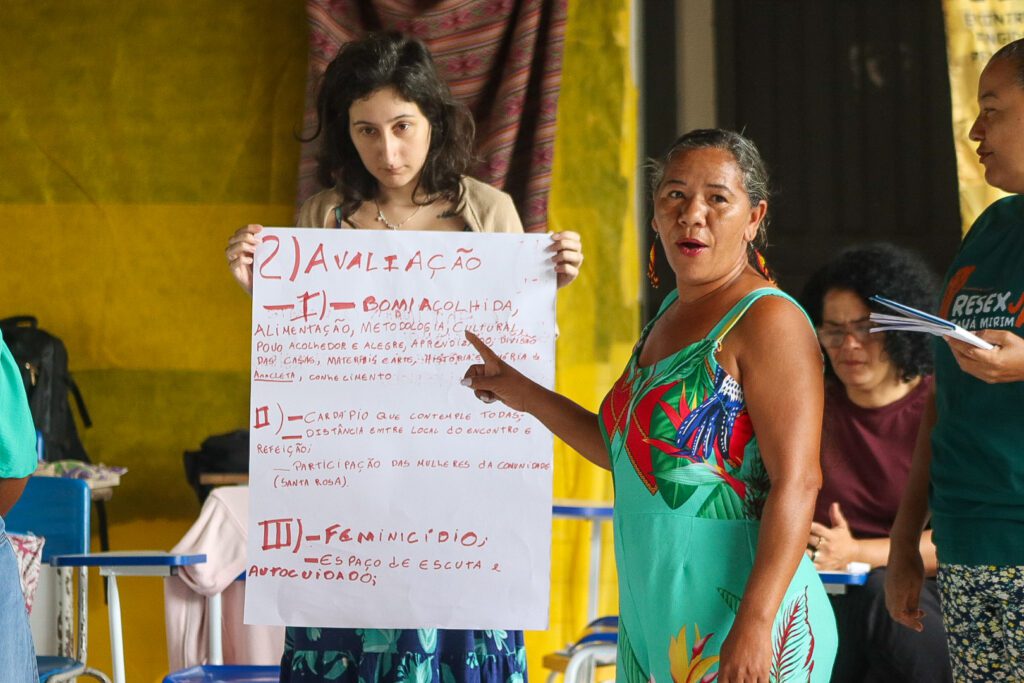 2) AVALIAÇÃO
— I) — BOM/ACOLHIDA,
ALIMENTAÇÃO, METODOLOGIA, CULTURAL,
POVO ACOLHEDOR E ALEGRE, DIVISÃO
DAS CASAS, MATERIAIS E ARTE, HISTÓRIA E
ANACLETA, CONHECIMENTO
II) — CARDÁPIO QUE CONTEMPLE TODAS;
— DISTÂNCIA EMTRE LOCAL DO ENCONTRO E
REFEIÇÃO;
— PARTICIPAÇÃO DAS MULHERES DA COMUNIDADE
(SANTA ROSA).
III) — FEMINICÍDIO;
— ESPAÇO DE ESCUTA E
AUTOCUIDADO;
RESEX
MIRIM